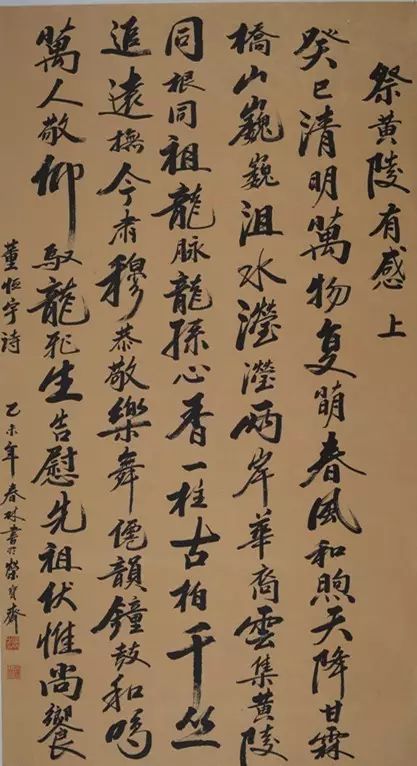 祭黄陵有感 上
癸巳清明萬物复萌春風和煦天降甘霖
橋山巍巍沮水瀅瀅兩岸華裔雲集黄陵
同根同祖龍脉龍孫心香一柱古柏千丛
追遠撫今肃穆恭敬樂舞僊韻鐘鼓和鳴
萬人敬仰馭龍飛生告慰先祖伏惟尚饗
董恒宇诗
乙未年春林書於榮宝齋